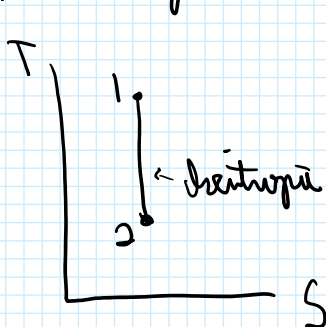 T
1
← Isentropic
2
S